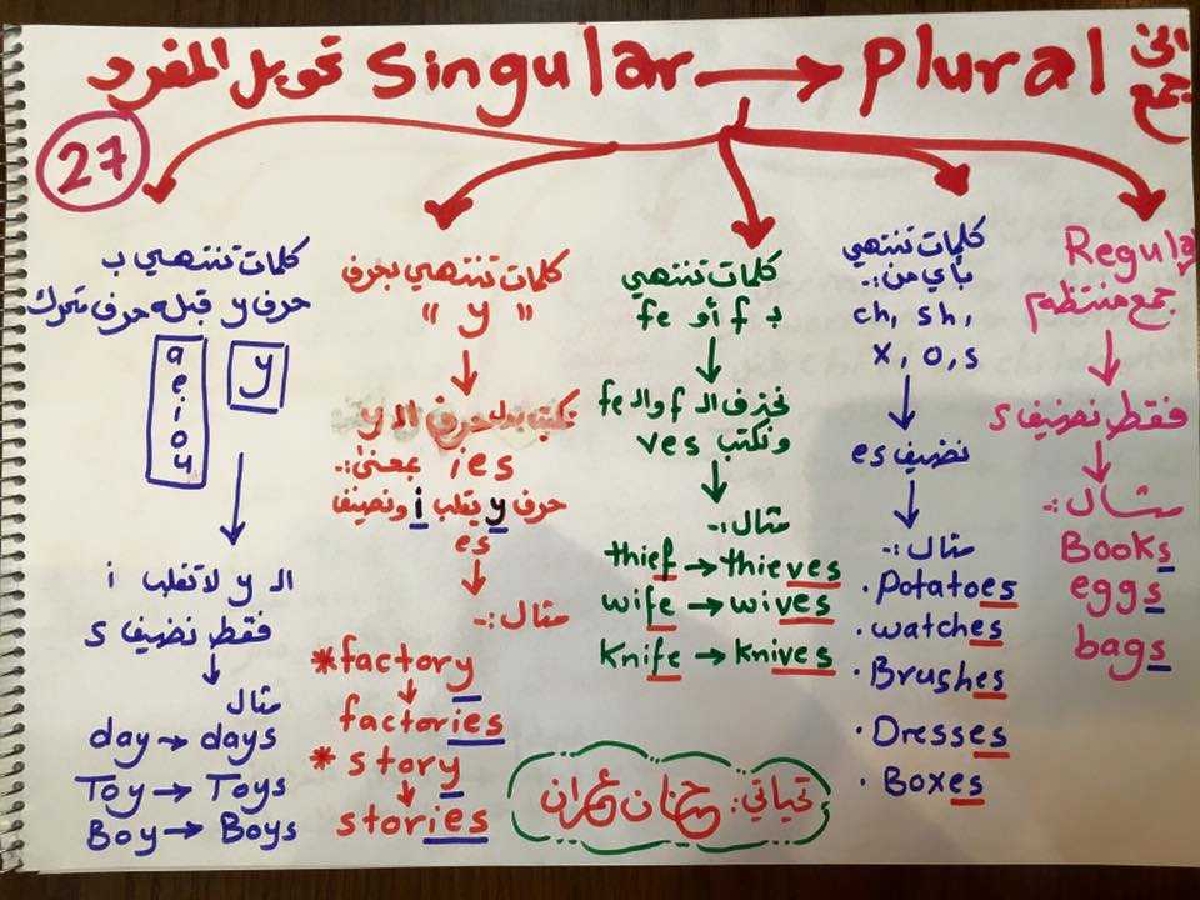 تحويل المفرد Singular → Plural الى جمع
27
Regular
جمع منتظم
فقط نضيف s
مثال:-
Books
eggs
bags
كلمات تنتهي
بأي من:-
ch, sh,
x, o, s
نضيف es
مثال:-
• Potatoes
• watches
• Brushes
• Dresses
• Boxes
كلمات تنتهي
بـ f أو fe
نحذف الـ f والـ fe
ونكتب ves
مثال:-
thief → thieves
wife → wives
Knife → Knives
كلمات تنتهي بحرف
"y"
نكتب بدل حرف الـ y
ies بمعنى:-
حرف y يقلب i ونضيف
es
مثال:-
* factory
factories
* story
stories
كلمات تنتهي ب
حرف y قبله حرف متحرك
y
a
e
i
o
u
الـ y لا تقلب i
فقط نضيف s
مثال
day → days
Toy → Toys
Boy → Boys
تحياتي: حنان عمران